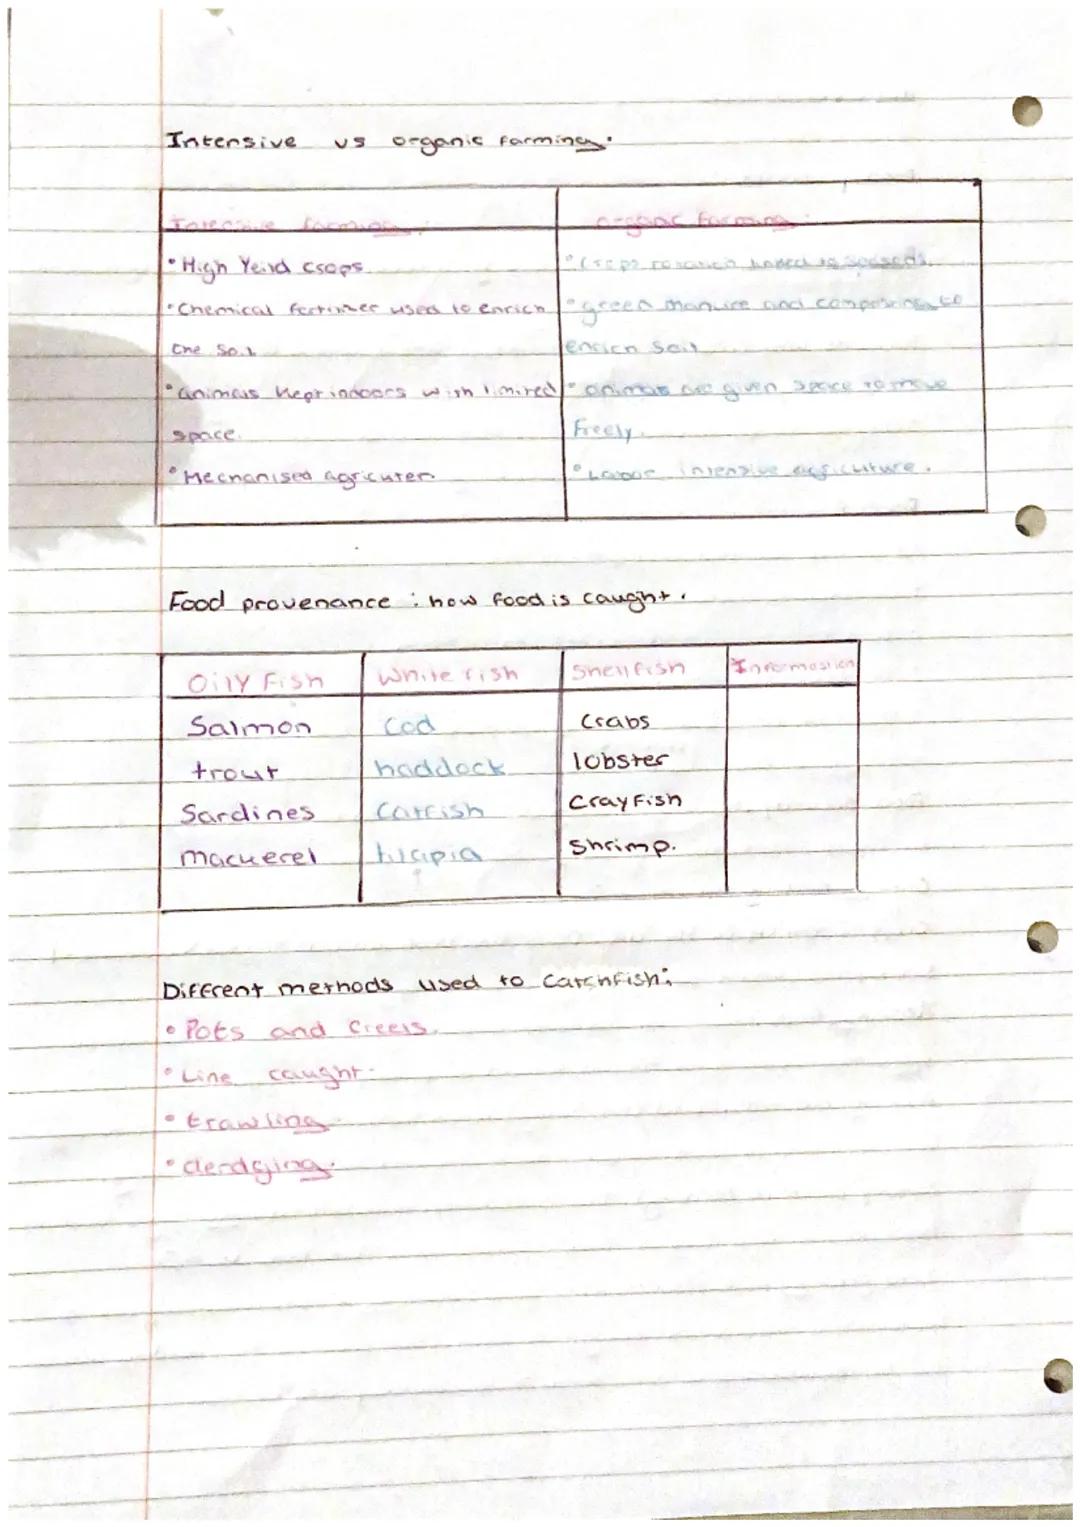 Intensive vs organic farming.
Intensive farming: organic farming:
• High Yeild crops. • Crops rotation linked to seasons.
• Chemical fertilizer used to enrich • green manure and composting to
the soil enrich soil
• animals kept indoors with limited • animals are given space to move
space. freely.
• Mechanised agricuter. • Labour intensive agriculture.
Food provenance : how food is caught.
Oily Fish White fish Shell fish Information
Salmon Cod Crabs
trout haddock lobster
Sardines Catfish Crayfish
mackerel tilapia Shrimp.
Different methods used to catch fish:
• Pots and Creels.
• Line caught.
• trawling.
• derdging.